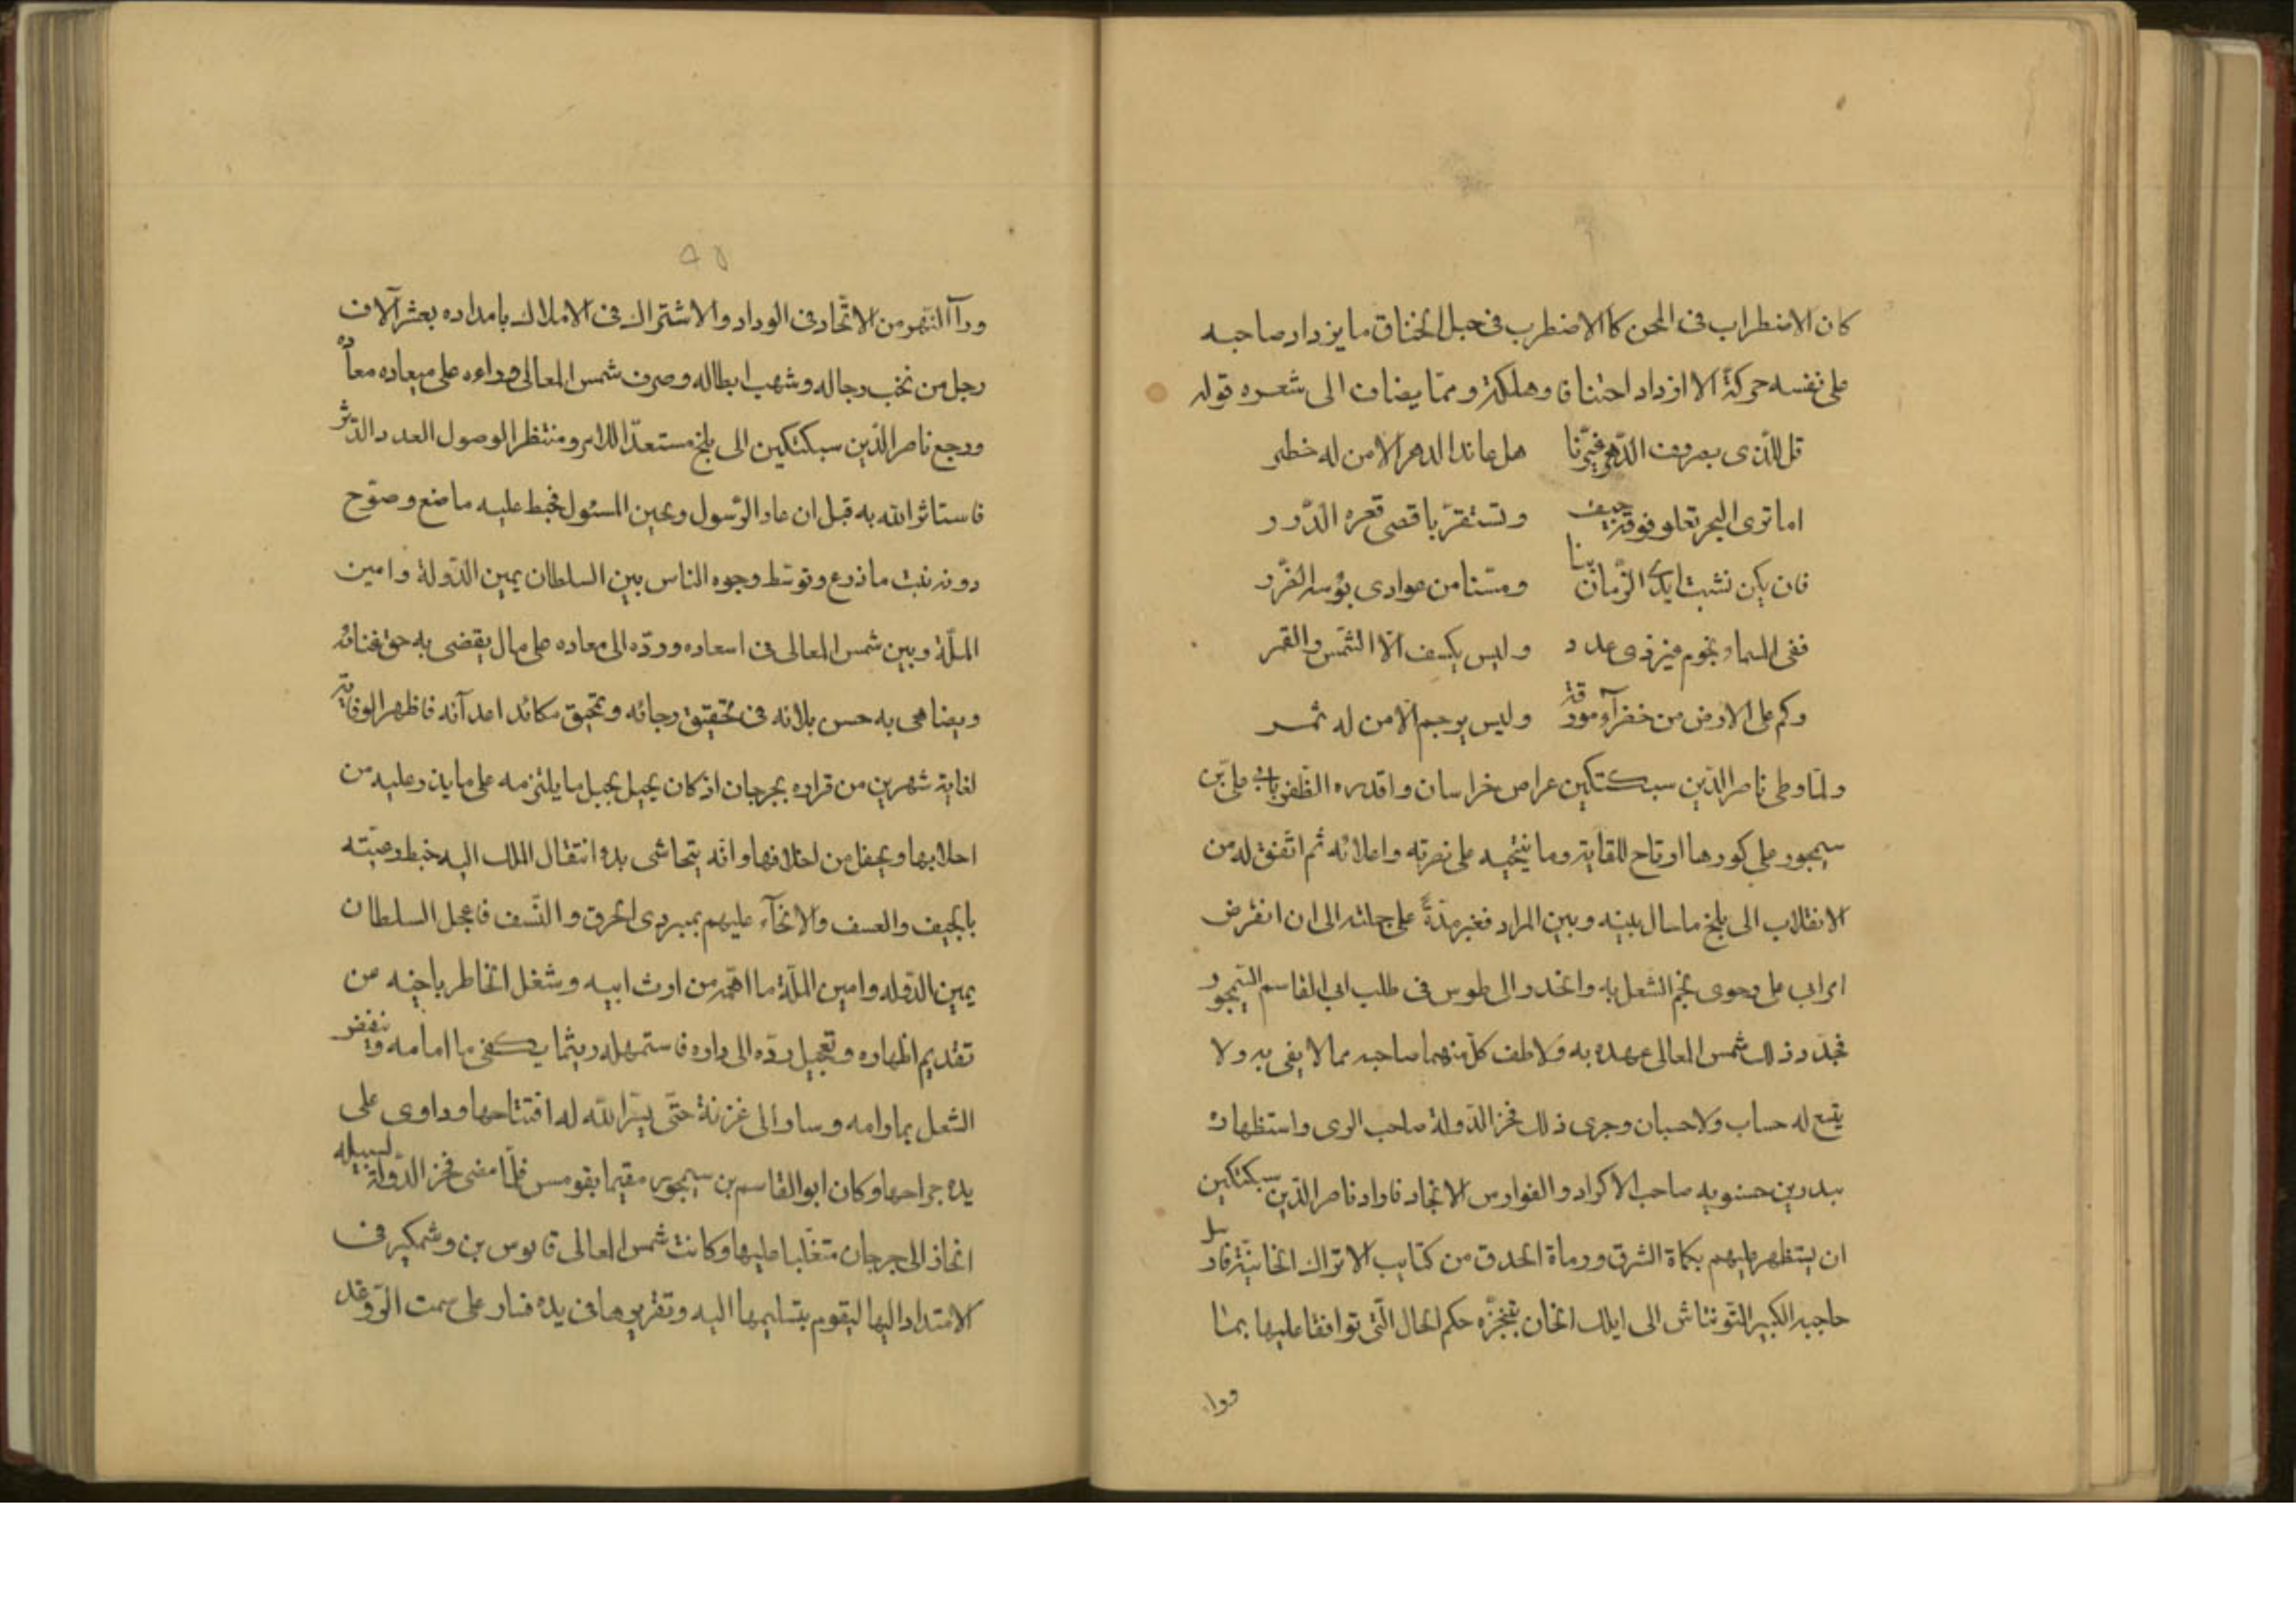 كان الاضطراب فى المحن كالاضطرب فى حبل الخناق ما يزداد صاحبه
على نفسه حركةً الا ازداد اختناقا وهلكة ومما يضاف الى شعره قوله
قل للذى بصروف الدهر عيّرنا هل عاند الدهر الا من له خطر
اما ترى البحر تعلو فوقه جيف وتستقرّ باقصى قعره الدّرر
فان يكن نشبت ايدى الزّمان بنا ومسّنا من عوادى بؤسه الضّرر
ففى السماء نجوم غير ذى عدد وليس يكسف الّا الشّمس والقمر
وكم على الارض من خضرآء مورقة وليس يرجم الا من له ثمر
ولمّا وطى ناصر الدّين سبكتكين عراص خراسان واقدره الظّفر بابى على بن
سيمجور على كورها ارتاح للقايه وما ينجيه على نصرته واعلائه ثم اتّفق له من
الانقلاب الى بلخ ما سال بينه وبين المراد فغبر مدّةً على جملته الى ان انقرض
امر ابى على وحوى نجم الشغل به وانحدر الى طوس فى طلب ابى القاسم السّيمجور
فجدّد ذلك شمس المعالى عهده به ولاطف كل منهما صاحبه بما لا يفى به ولا
يتسع له حساب ولا حسبان وجرى ذلك فخر الدّولة صاحب الرى واستظهاره
ببدر بن حسنويه صاحب الاكراد والفوارس الانجاد فاراد ناصر الدّين سبكتكين
ان يستظهر عليهم بكماة الشرق ورماة الحدق من كتايب الاتراك الخانيّة فارسل
حاجبه الكبير التّونتاش الى ايلك الخان يتنجّزه حكم الحال الّتى توافقا عليها بما
ورا
٩٥
ورآء النّهر من الاتّحاد فى الوداد والاشتراك فى الاملاك بامداده بعشر آلاف
رجل من نخب رجاله وشهب ابطاله وصرف شمس المعالى ورآءه على ميعاده معاده
ورجع ناصر الدّين سبكتكين الى بلخ مستعدّا للامر ومنتظرا لوصول العدد الدّثر
فاستاثر الله به قبل ان عاد الرّسول وبحين المسئول فحبط عليه ما صنع وصوّح
دونه نبت ما زرع وتوسّط وجوه الناس بين السلطان يمين الدّولة وامين
الملّة وبين شمس المعالى فى اسعاده وردّه الى معاده على مال يقضى به حق غنائه
ويضاهى به حسن بلائه فى تحقيق رجائه وتحيق مكائد اعدآئه فاظهر الوفا به
لغاية شهرين من قراره بجرجان اذ كان يحيل بجبل ما يلتزمه على ما يدر عليه من
احلابها ويحفل من اخلافها وانه يتحاشى بدء انتقال الملك اليه خبط رعيّته
بالحيف والعسف والانحآء عليهم بمبردى الحرق والنّسف فاعجل السلطان
يمين الدّوله وامين الملّة ما اهمّه من ارث ابيه وشغل الخاطر باخيه من
تقديم اظهاره وتعجيل ردّه الى داره فاستمهله ريثما يكفى ما امامه وينفض
الشغل بما ورامه وسار الى غزنة حتّى يسّر الله له افتتاحها وداوى على
يده جراحها وكان ابو القاسم بن سيمجور مقيما بقومس فلمّا مضى فخر الدّولة لسبيله
انحاذ الى جرجان متغلّبا عليها وكانت شمس المعالى قابوس بن وشمكير فى
الامتداد اليها ليقوم بتسليمها اليه وتقريرها فى يده فسار على سمت الرّوغد